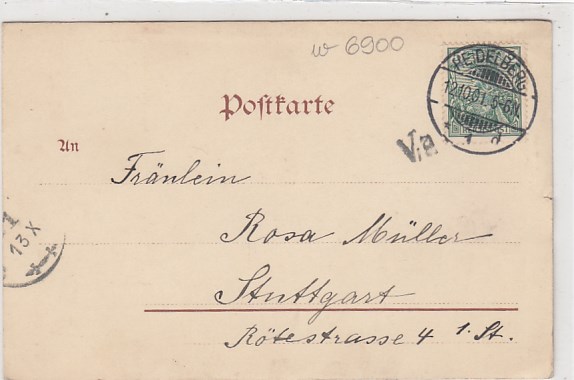 w 6900
HEIDELBERG
12.10.01. 5-6N
1 d
Postkarte
Va
An
Fräulein
Rosa Müller
Stuttgart
Rötestrasse 4 1. St.
1
13 X